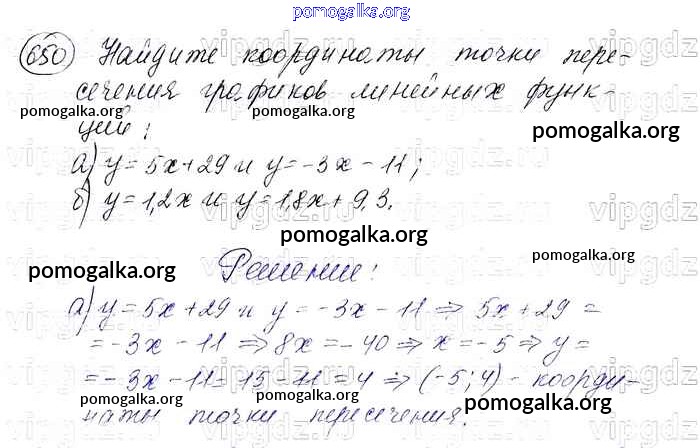 pomogalka.org
650 Найдите координаты точки пере-
сечения графиков линейных функ-
ций:
pomogalka.org pomogalka.org pomogalka.org
а) y = 5x + 29 и y = -3x - 11;
б) y = 1,2x и y = 1,8x + 9,3.
pomogalka.org
Решение:
pomogalka.org pomogalka.org
а) y = 5x + 29 и y = -3x - 11 ⇒ 5x + 29 =
= -3x - 11 ⇒ 8x = -40 ⇒ x = -5 ⇒ y =
= -3x - 11 = 15 - 11 = 4 ⇒ (-5; 4) - коорди-
наты точки пересечения.
pomogalka.org pomogalka.org pomogalka.org
vipgdz